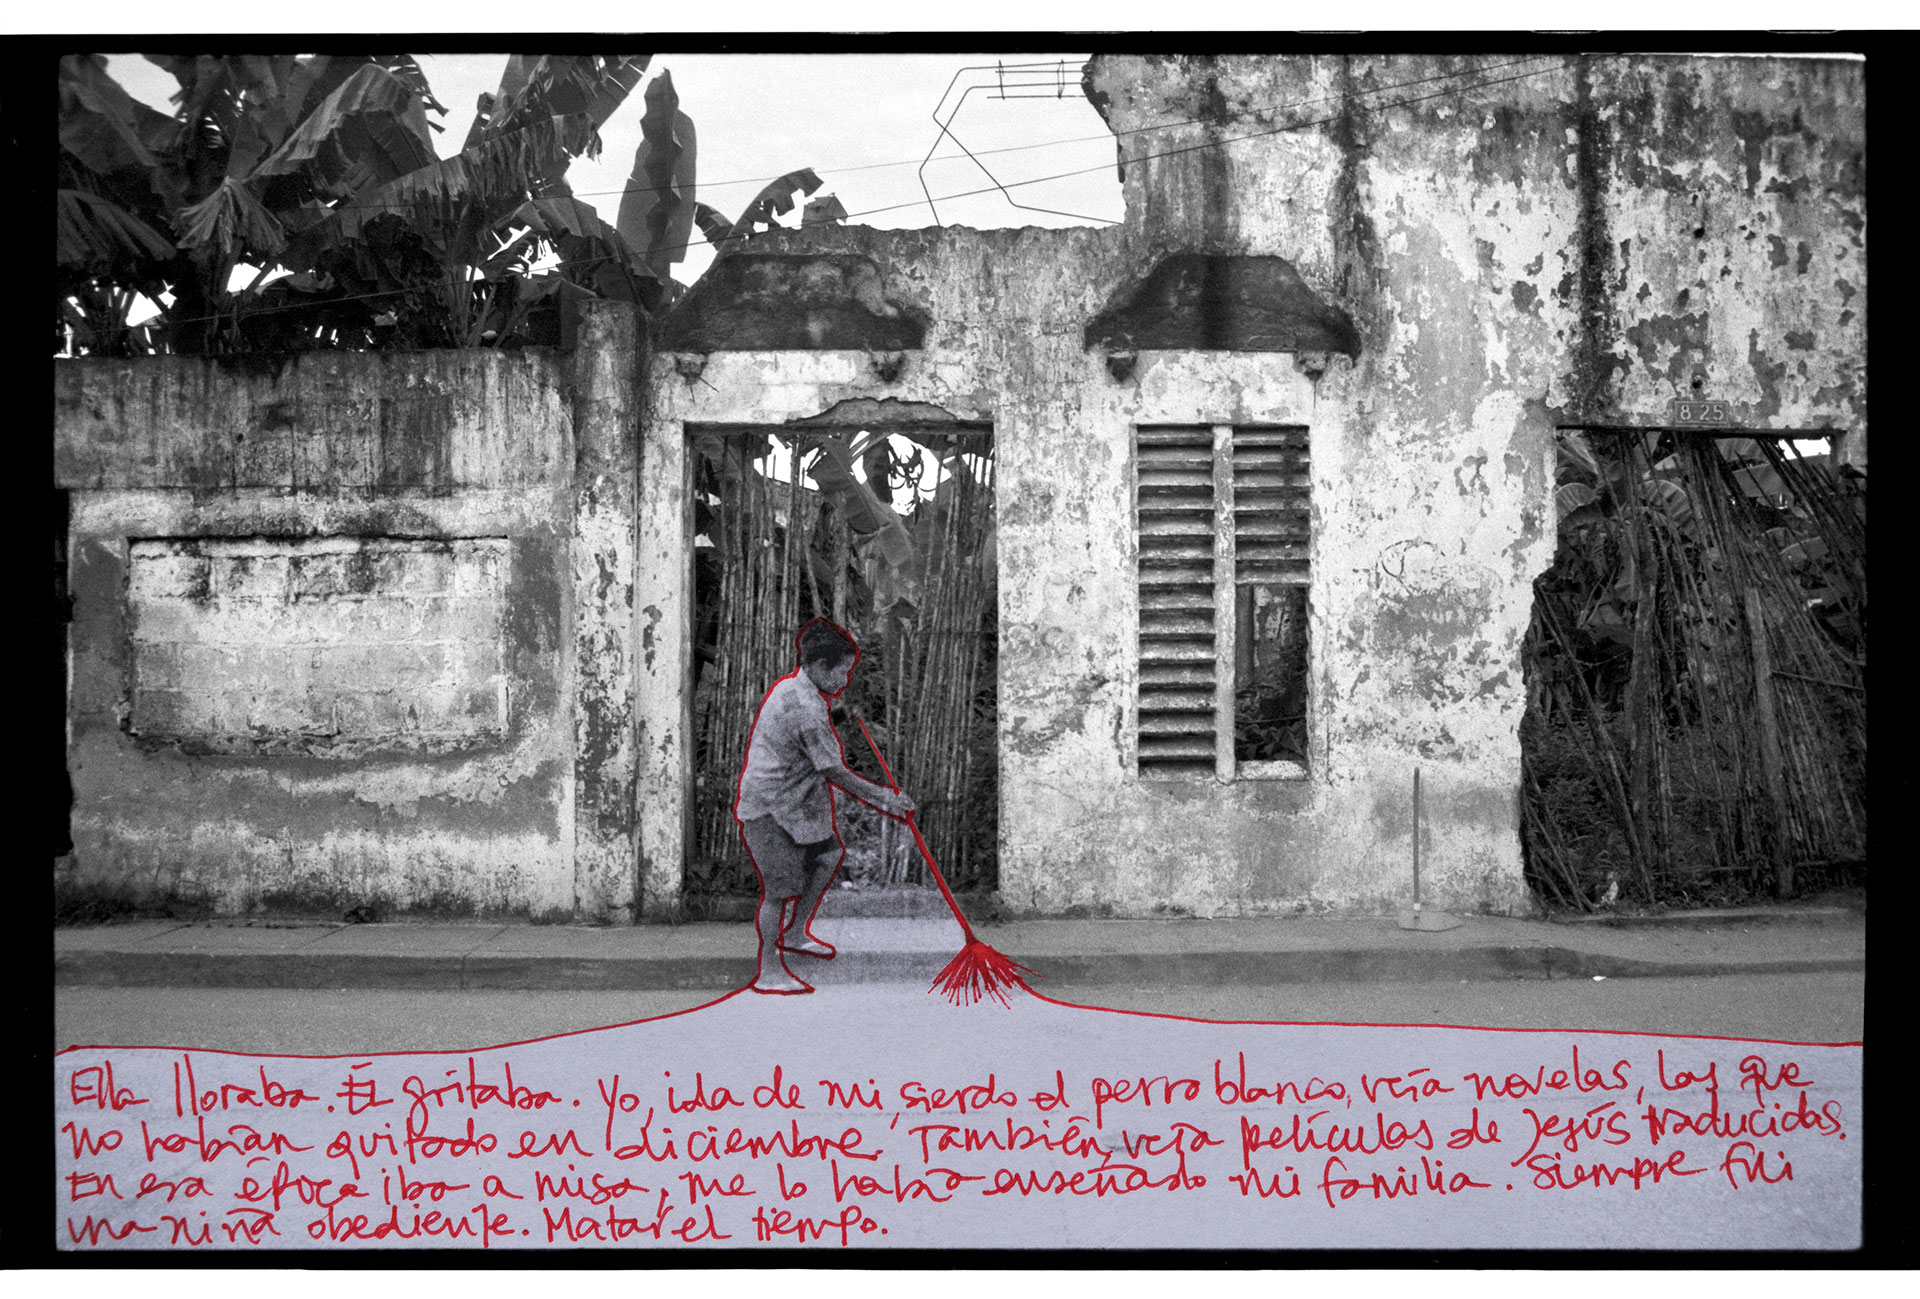 8 25
Ella lloraba. Él gritaba. Yo, ida de mi, siendo el perro blanco, veía novelas, las que
no habían quitado en diciembre. También veía películas de Jesús traducidas.
En esa época iba a misa, me lo había enseñado mi familia. Siempre fui
una niña obediente. Matar el tiempo.